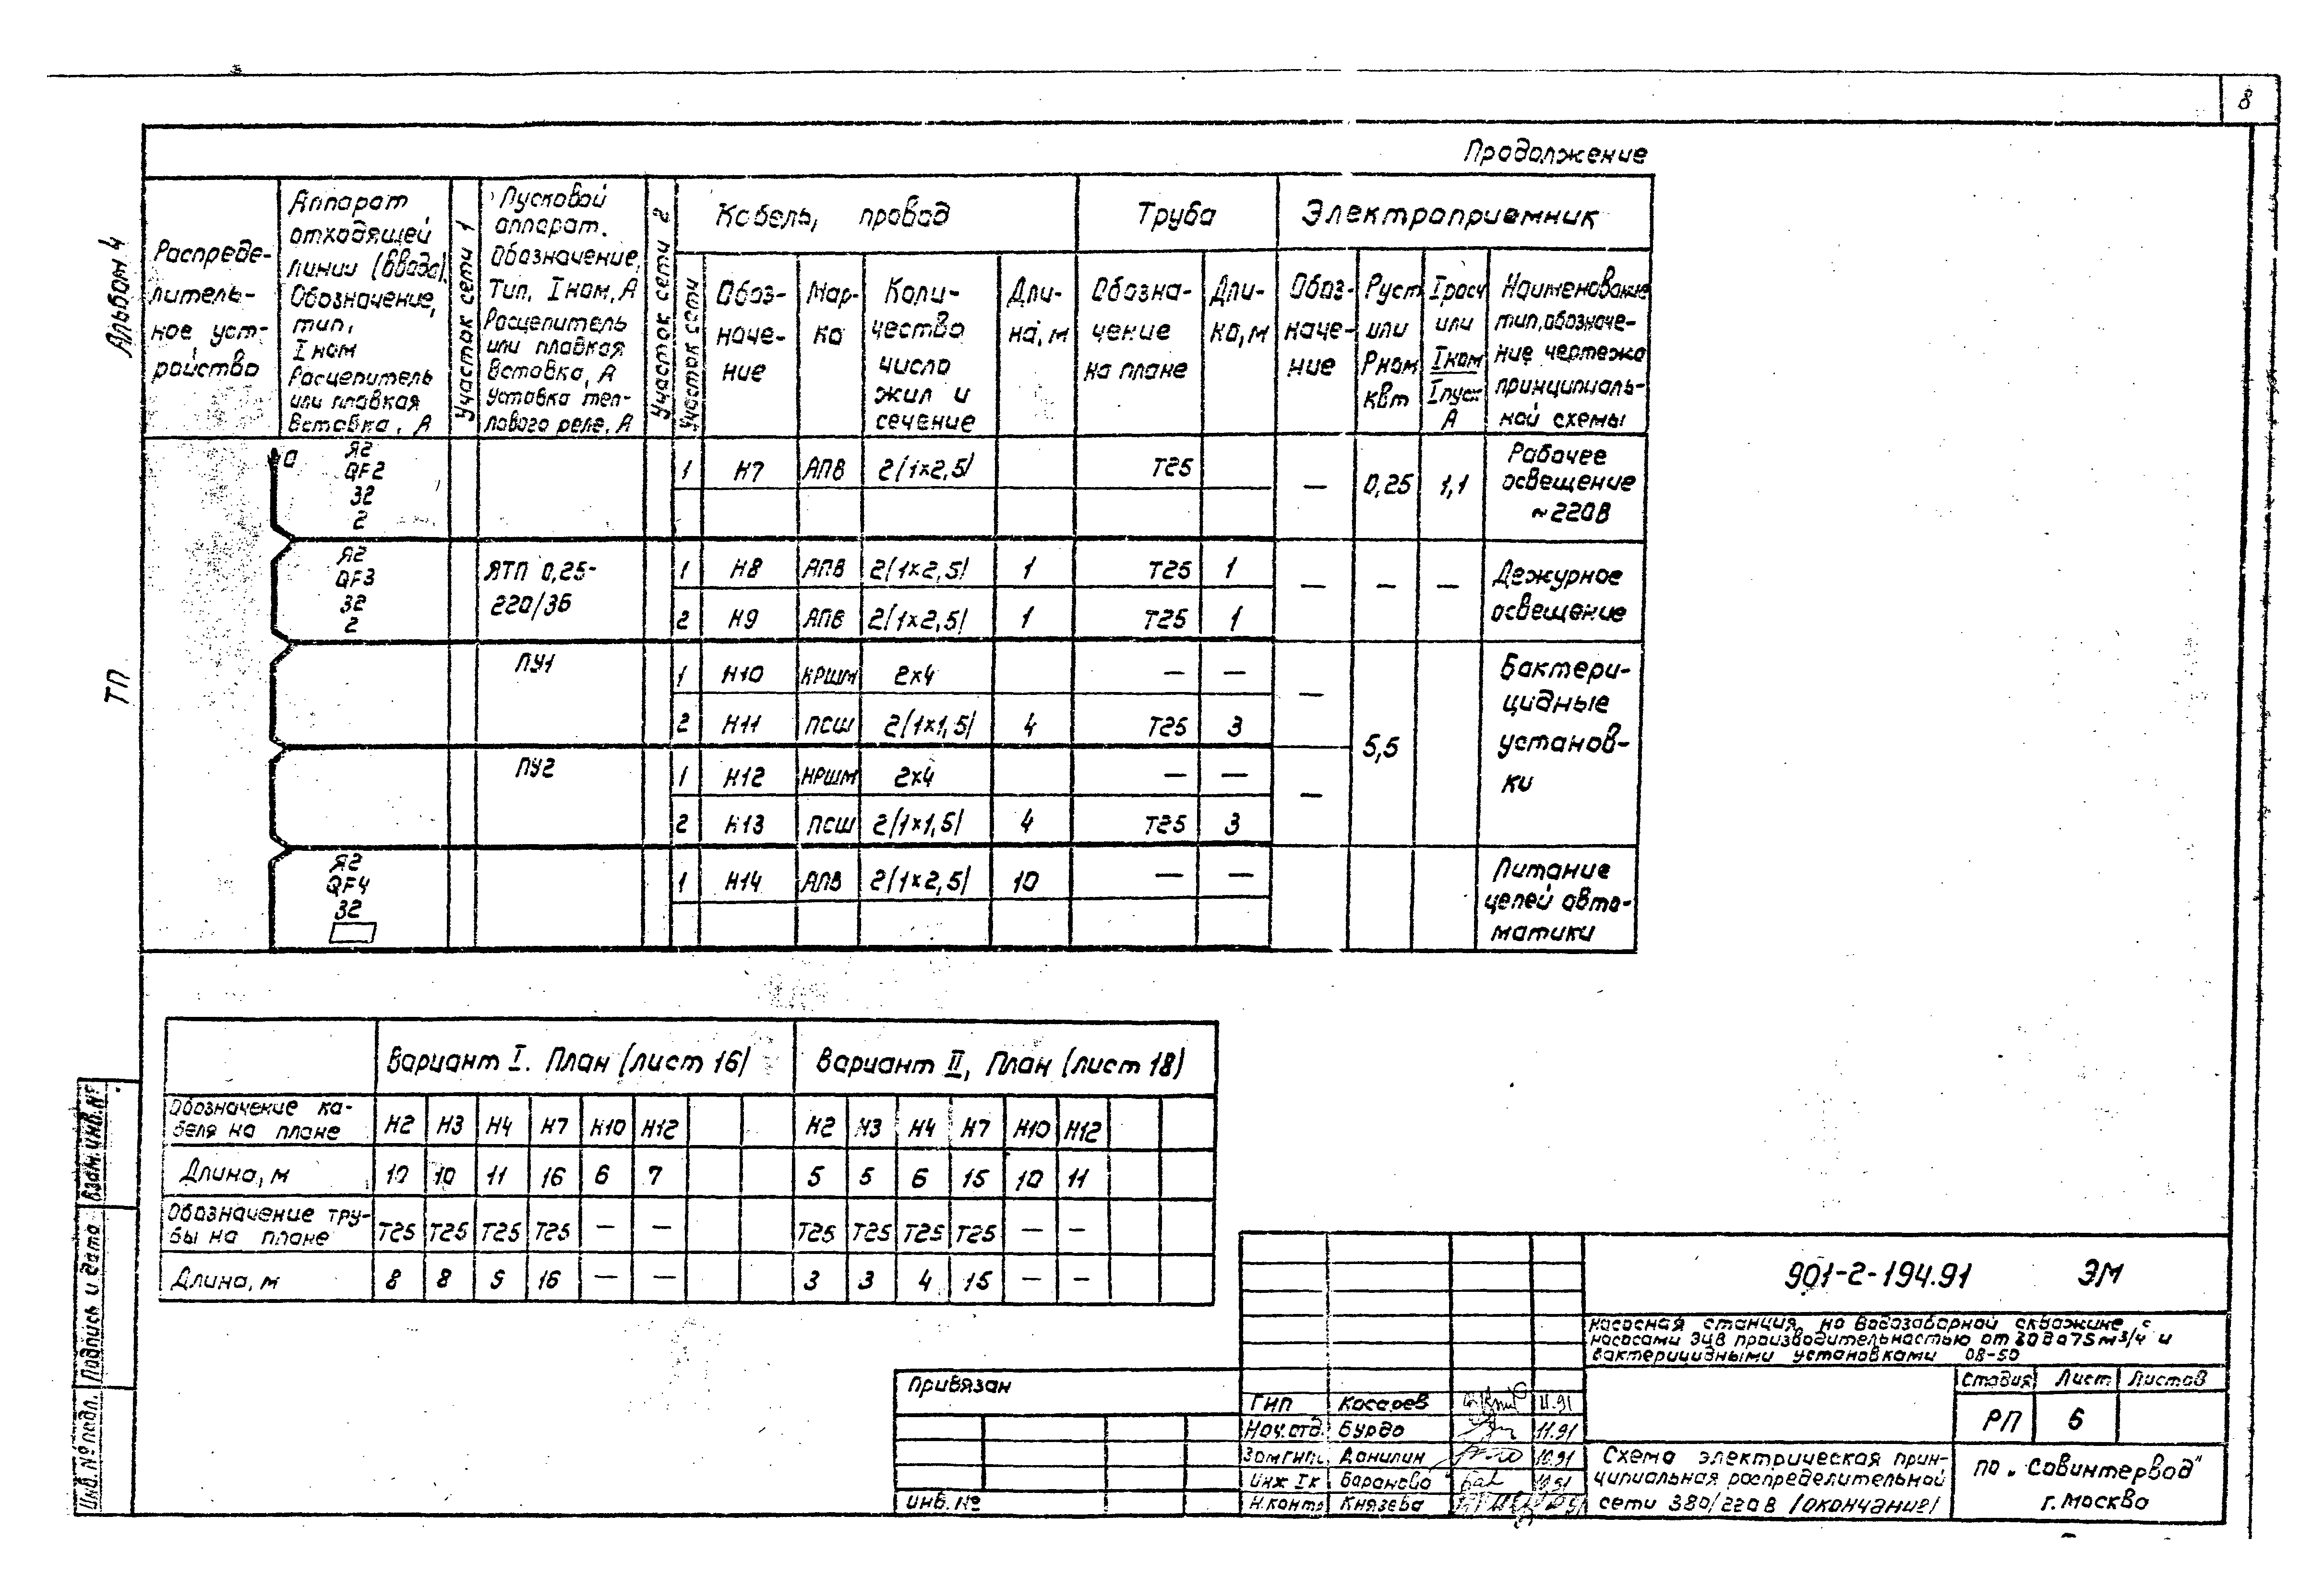 8
Продолжение
Альбом 4
ТП
Распреде-
литель-
ное уст-
ройство
Аппарат
отходящей
линии (ввода).
Обозначение,
тип,
Iном
Расцепитель
или плавкая
вставка, А
Участок сети 1
Пусковой
аппарат.
Обозначение,
Тип, Iном, А
Расцепитель
или плавкая
вставка, А
Уставка теп-
лового реле, А
Участок сети 2
Кабель, провод
Труба
Электроприемник
Участок сети
Обоз-
наче-
ние
Мар-
ка
Коли-
чество
число
жил и
сечение
Дли-
на, м
Обозна-
чение
на плане
Дли-
на, м
Обоз-
наче-
ние
Руст
или
Рном
кВт
Iрасч
или
Iном
Iпуск
А
Наименование
тип, обозначе-
ние чертежа
принципиаль-
ной схемы
а Я2
QF2
32
2
1 Н7 АПВ 2(1×2,5) Т25 — 0,25 1,1
Рабочее
освещение
~220В
Я2
QF3
32
2
ЯТП 0,25-
220/36
1 Н8 АПВ 2(1×2,5) 1 Т25 1 — — —
2 Н9 АПВ 2(1×2,5) 1 Т25 1
Дежурное
освещение
ПУ1
1 Н10 КРШМ 2×4 — — —
2 Н11 ПСШ 2(1×1,5) 4 Т25 3
ПУ2
1 Н12 НРШМ 2×4 — — —
2 Н13 ПСШ 2(1×1,5) 4 Т25 3
5,5
Бактери-
цидные
установ-
ки
Я2
QF4
32
1 Н14 АПВ 2(1×2,5) 10 — —
Питание
цепей авто-
матики
Вариант I. План (лист 16) Вариант II, План (лист 18)
Обозначение ка-
беля на плане
Н2 Н3 Н4 Н7 Н10 Н12 Н2 Н3 Н4 Н7 Н10 Н12
Длина, м 10 10 11 16 6 7 5 5 6 15 10 11
Обозначение тру-
бы на плане
Т25 Т25 Т25 Т25 — — Т25 Т25 Т25 Т25 — —
Длина, м 8 8 9 16 — — 3 3 4 15 — —
Взам. инв. №
Подпись и дата
Инв. № подл.
Привязан
Инв. №
901-2-194.91 ЭМ
Насосная станция на водозаборной скважине с
насосами ЭЦВ производительностью от 30 до 75 м3/ч и
бактерицидными установками ОВ-50
Стадия Лист Листов
РП 6
ГИП Косарев 11.91
Нач.отд. Бурдо 11.91
Зам ГИП Данилин 10.91
Инж Iк Баранова 10.91
Н.контр Князева
Схема электрическая прин-
ципиальная распределительной
сети 380/220В (окончание)
ПО „Совинтервод"
г. Москва